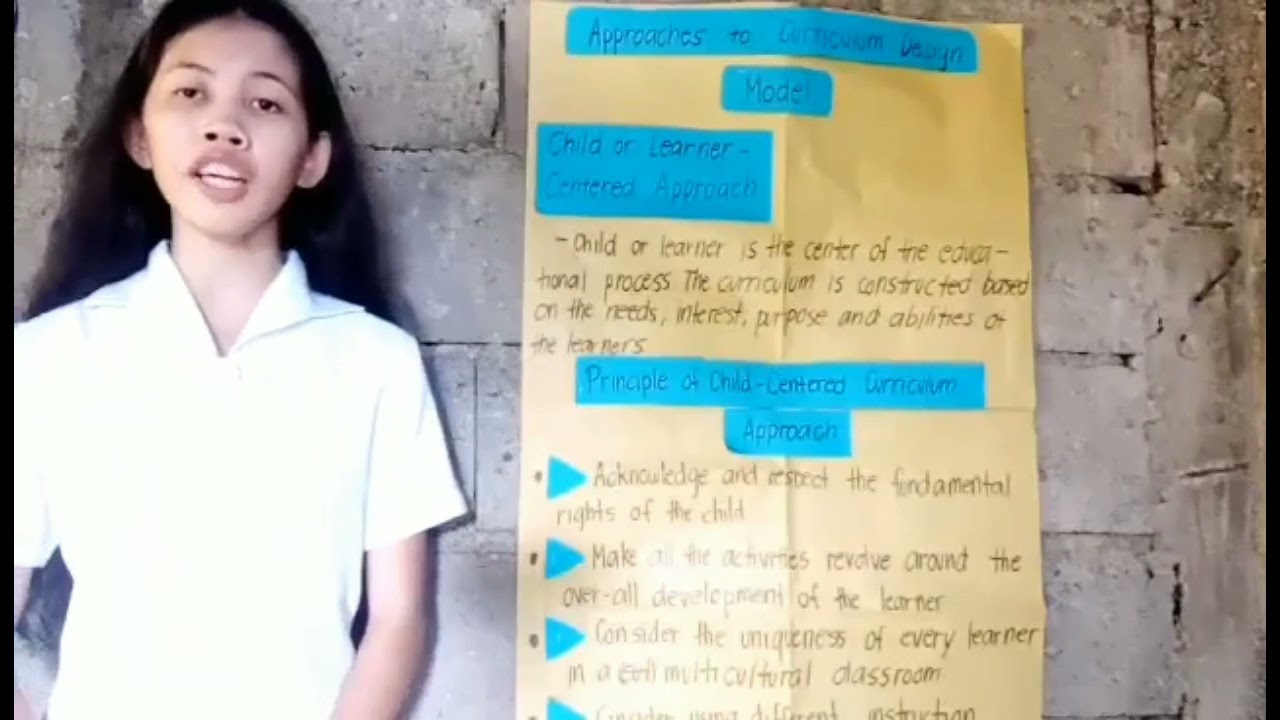 Approaches to Curriculum Design
Model
Child or Learner-
Centered Approach
- Child or learner is the center of the educa-
tional process. The curriculum is constructed based
on the needs, interest, purpose and abilities of
the learners.
Principle of Child-Centered Curriculum
Approach
Acknowledge and respect the fundamental
rights of the child
Make all the activities revolve around the
over-all development of the learner
Consider the uniqueness of every learner
in a multicultural classroom
Consider using different instruction